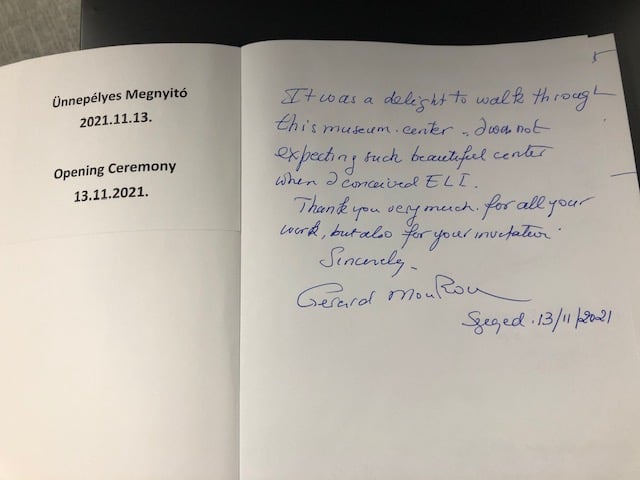 Ünnepélyes Megnyitó
2021.11.13.
Opening Ceremony
13.11.2021.
It was a delight to walk through
this museum center. I was not
expecting such beautiful center
when I conceived ELI.
Thank you very much for all your
work, but also for your invitation.
Sincerely
Gerard Mourou
Szeged. 13/11/2021